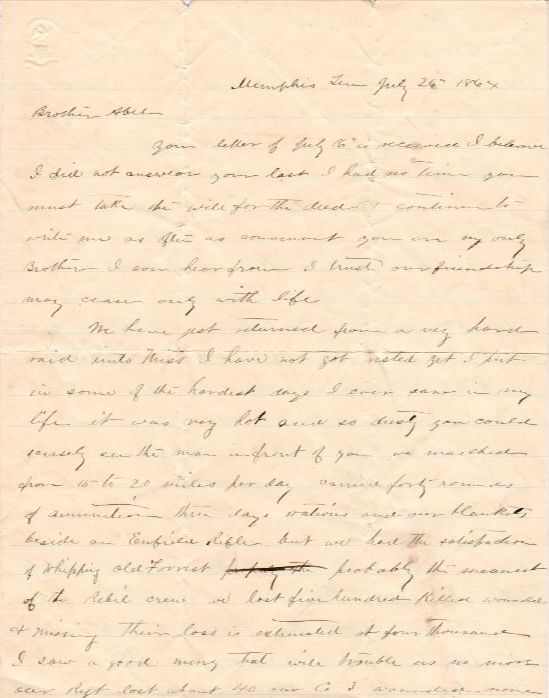 Memphis Ten July 26th 1864
Brother Abel
Your letter of July 16th is received I believe
I did not answer your last I had no time you
must take the will for the deed & continue to
write me as often as convenient you are my only
Brother I ever hear from I trust our friendship
may cease only with life
We have just returned from a very hard
raid into Miss I have not got rested yet I put
in some of the hardest days I ever saw in my
life it was very hot and so dusty you could
scarsely see the man in front of you we marched
from 15 to 20 miles per day carried forty rounds
of ammunition three days rations and our blankets
beside an Enfield Rifle but we had the satisfaction
of Whipping old Forrest probably the meanest
of the Rebil crew we lost five hundred killed wounded
& missing Their loss is estimated at four thousand
I saw a good many that will trouble us no more
our Regt lost about 40 our Co 3 wounded none